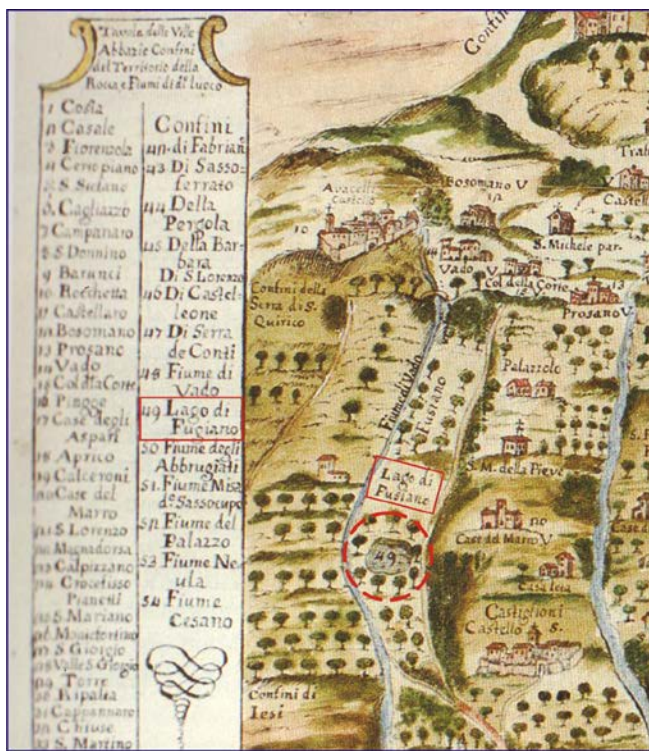 Tavola delle Ville
Abbazie Confini
del Territorio della
Rocca, e Fiumi di dº luoco
1 Costa
Casale
3 Fiorenzola
4
S. Stefano
6. Cagliazzo
7 Campanaro
8 S Donnino
9 Barunci
10 Rocchetta
11 Castellaro
12 Bosomano
13 Prosano
14 Vado
15 Col della Corte
16
17 Case degli
Aspari
18 Aprico
19 Calceroni
20 Case del
Marro
21 S Lorenzo
22 Magnadorsa
23 Calpizzano
24
Pianetti
25 S Mariano
26
27 S Giorgio
28 Valle S Giorgio
29 Torre
30 Ripalta
31 Cappannaro
32 Chiuse
33 S. Martino
Confini
42 di Fabrian
43 Di Sasso-
ferrato
44 Della
Pergola
45 Della Bar-
bara
Di S. Lorenzo
46 Di Castel-
leone
47 Di Serra
de Conti
48 Fiume di
Vado
49 Lago di
Fugiano
50 Fiume degli
Abbrugiati
51. Fiume Misa
dº Sassocupo
52 Fiume del
Palazzo
53 Fiume Ne-
vla
54 Fiume
Cesano
Confin
Avacelli
Castello
10
Bosomano V
12
Castell
S. Michele par.
14
Vado V
Col della Corte
15
13
Prosano V
Confini della
Serra di S.
Quirico
Fiume di Vado
Fusiano
Palazzolo
Lago di
Fusiano
S. M. della Pieve
49
20
Case del Marro V
Case d
Casaleia
Castiglioni
Castello S.
Confini di
Iesi